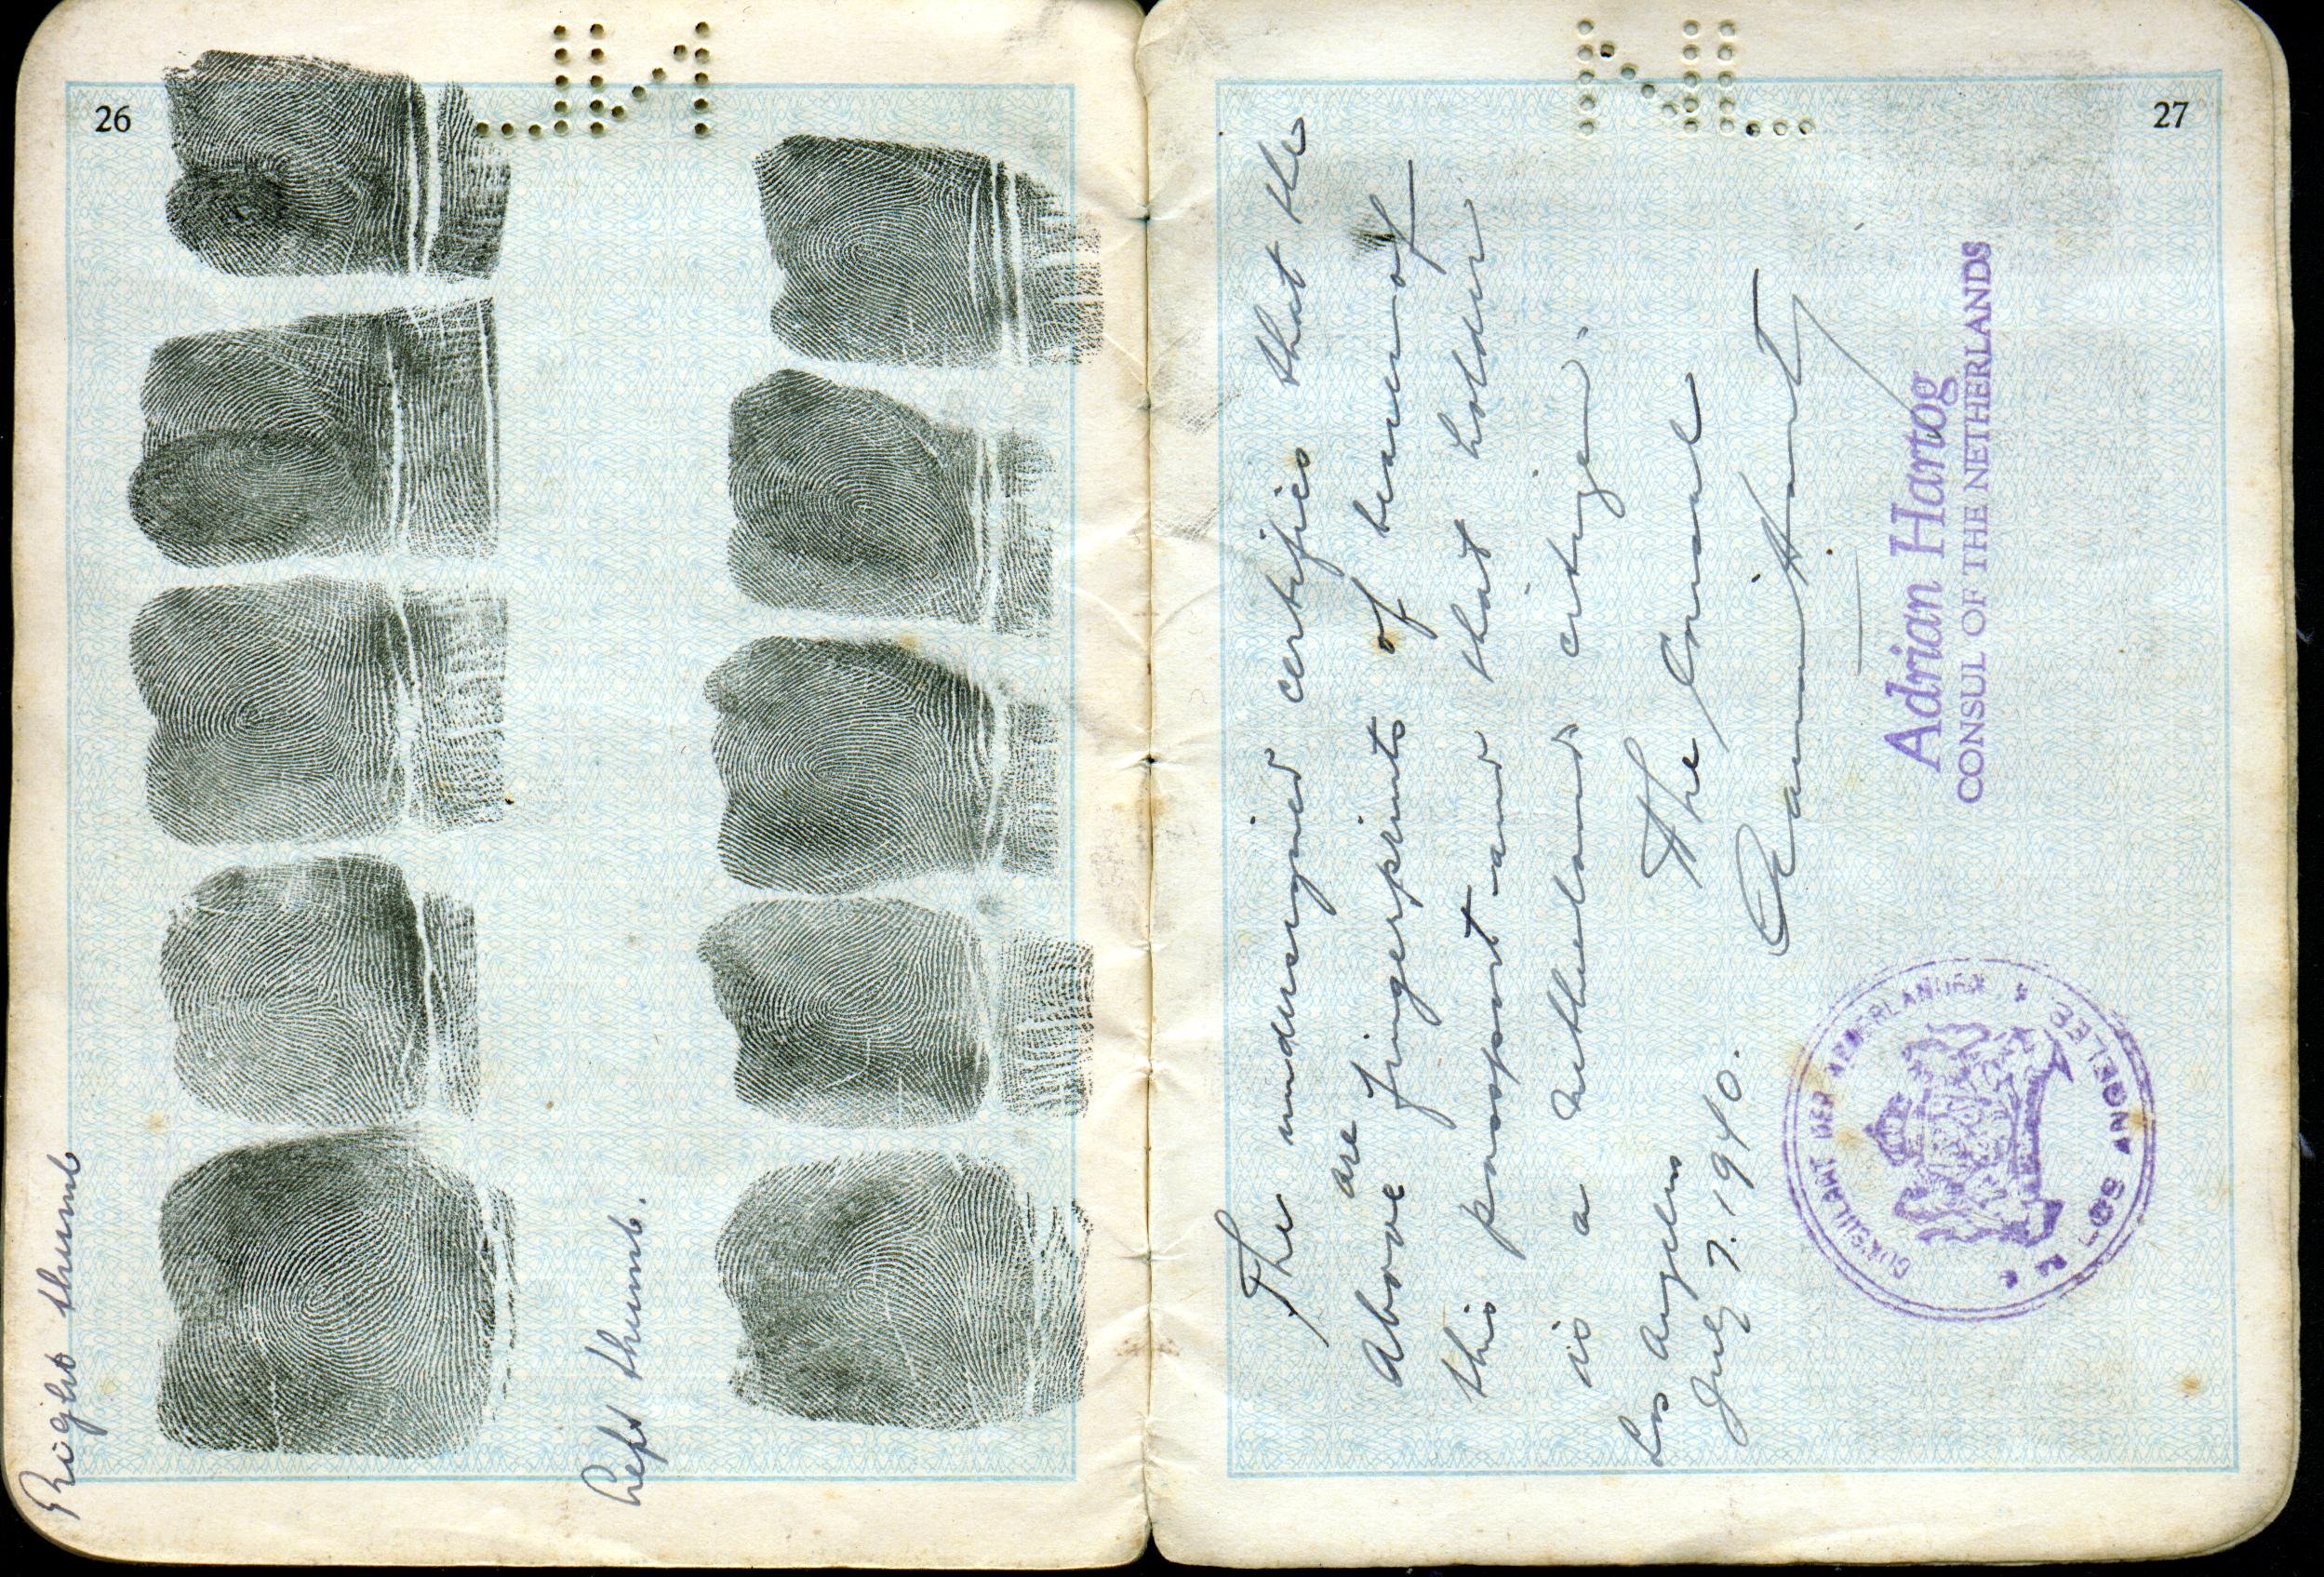 26
NL
Right thumb
Left thumb.
27
NL
The undersigned certifies that the
above are fingerprints of bearer of
this passport and that holder
is a Netherland citizen.
Los Angeles
July 7. 1940.
The Consul
Adrian Hartog
CONSUL OF THE NETHERLANDS
CONSULAAT DER NEDERLANDEN
LOS ANGELES